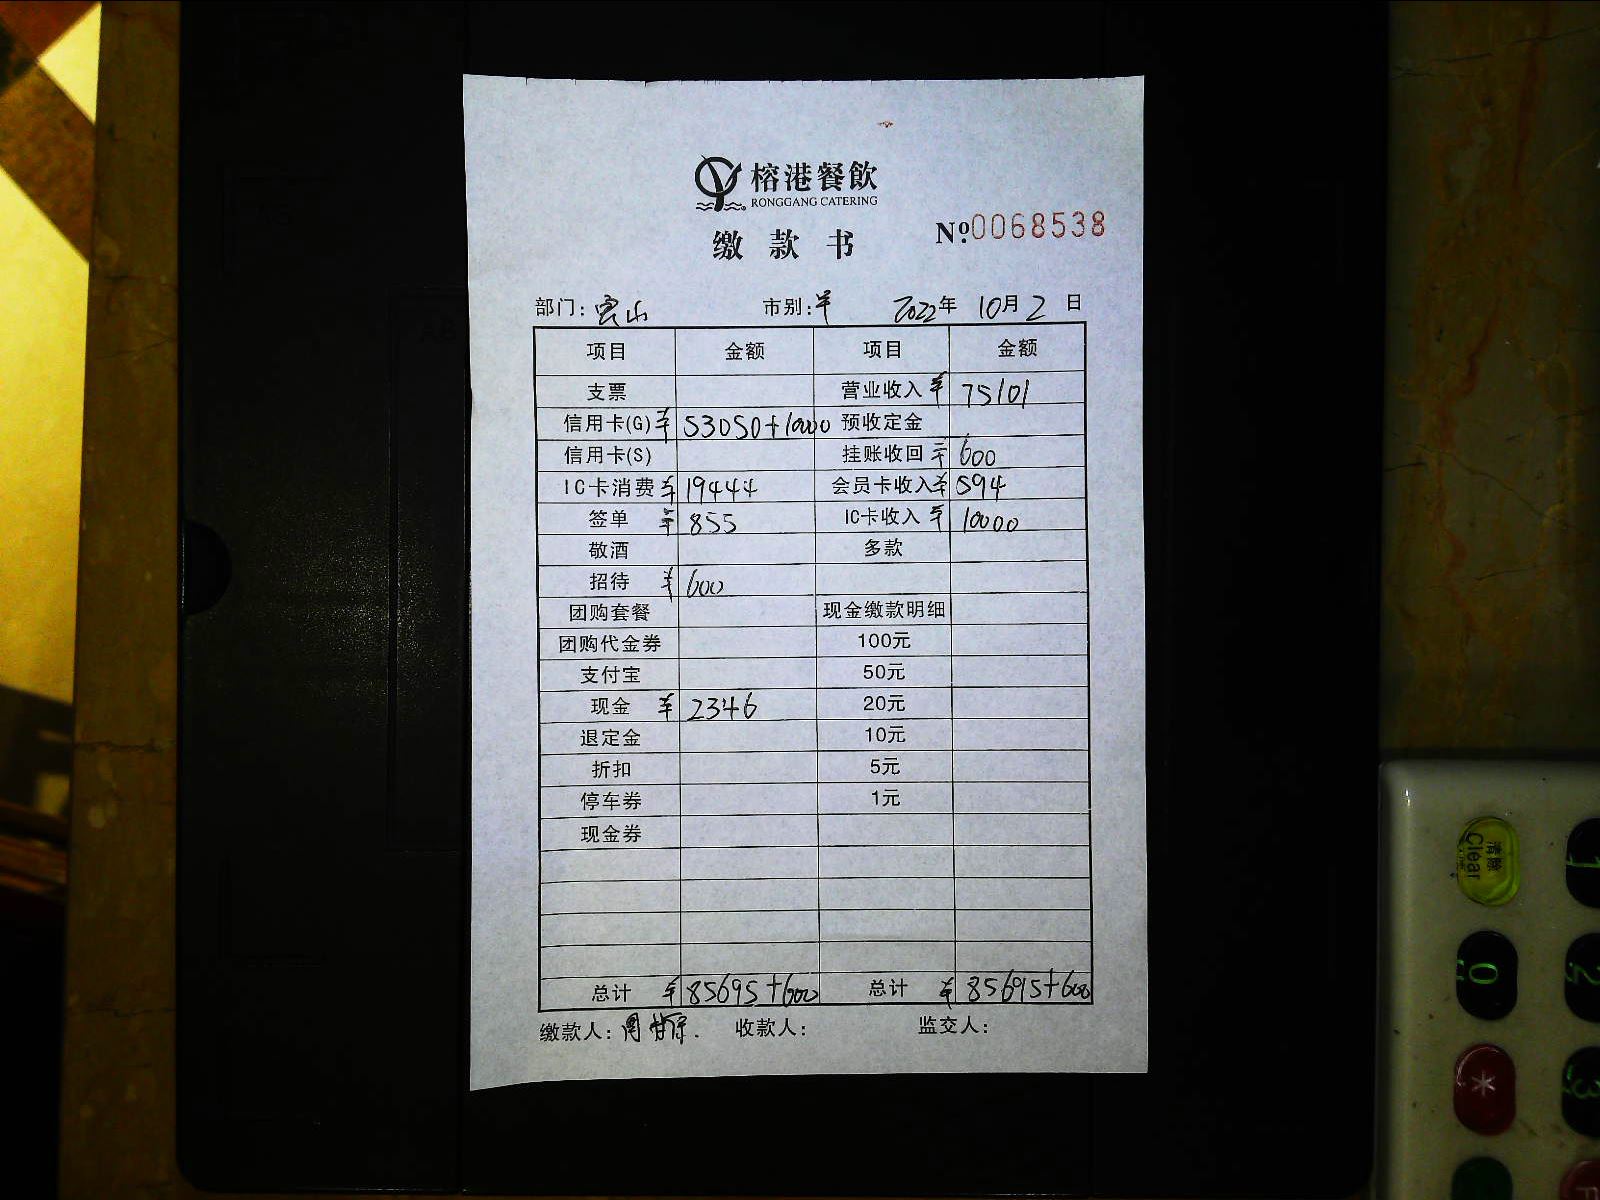 榕港餐飲
RONGGANG CATERING
缴 款 书
Nº:0068538
部门: 宝山 市别: 2022年 10月 2 日
项目 金额 项目 金额
支票 营业收入 ¥ 75101
信用卡(G) ¥ 53050+10000 预收定金
信用卡(S) 挂账收回 ¥ 600
IC卡消费 ¥ 19444 会员卡收入 ¥ 594
签单 ¥ 855 IC卡收入 ¥ 10000
敬酒 多款
招待 ¥ 600
团购套餐 现金缴款明细
团购代金券 100元
支付宝 50元
现金 ¥ 2346 20元
退定金 10元
折扣 5元
停车券 1元
现金券
总计 ¥ 85695+600 总计 ¥ 85695+600
缴款人: 周 收款人: 监交人:
清除
Clear
1
0
2
*
3